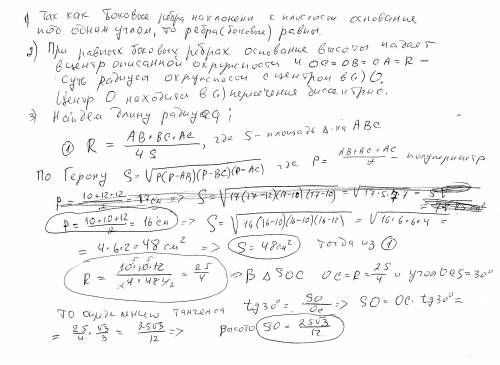 1) Так как боковые ребра наклонены к плоскости основания
под одним углом, то ребра (боковые) равны.
2) При равных боковых ребрах основание высоты падает
в центр описанной окружности и OC = OB = OA = R –
суть радиусы окружности с центром в (·) O.
Центр O находится в (·) пересечения биссектрис.
3) Найдем длину радиуса
① R = AB·BC·AC / 4S, где S – площадь Δ-ка ABC
По Герону S = √P(P-AB)(P-BC)(P-AC) где P = AB+BC+AC / 2 – полупериметр
P = 10+10+12 / 2 = 16 см => S = √16(16-10)(16-10)(16-12) = √16·6·6·4 =
= 4·6·2 = 48 см² => S = 48 см² тогда из ①
R = 10·10·12 / 4·48 = 25/4 => В Δ SOC OC = R = 25/4 и угол OCS = 30°
По определению тангенса tg30° = SO/OC => SO = OC·tg30° =
= 25/4 · √3/3 = 25√3/12 => высота SO = 25√3/12